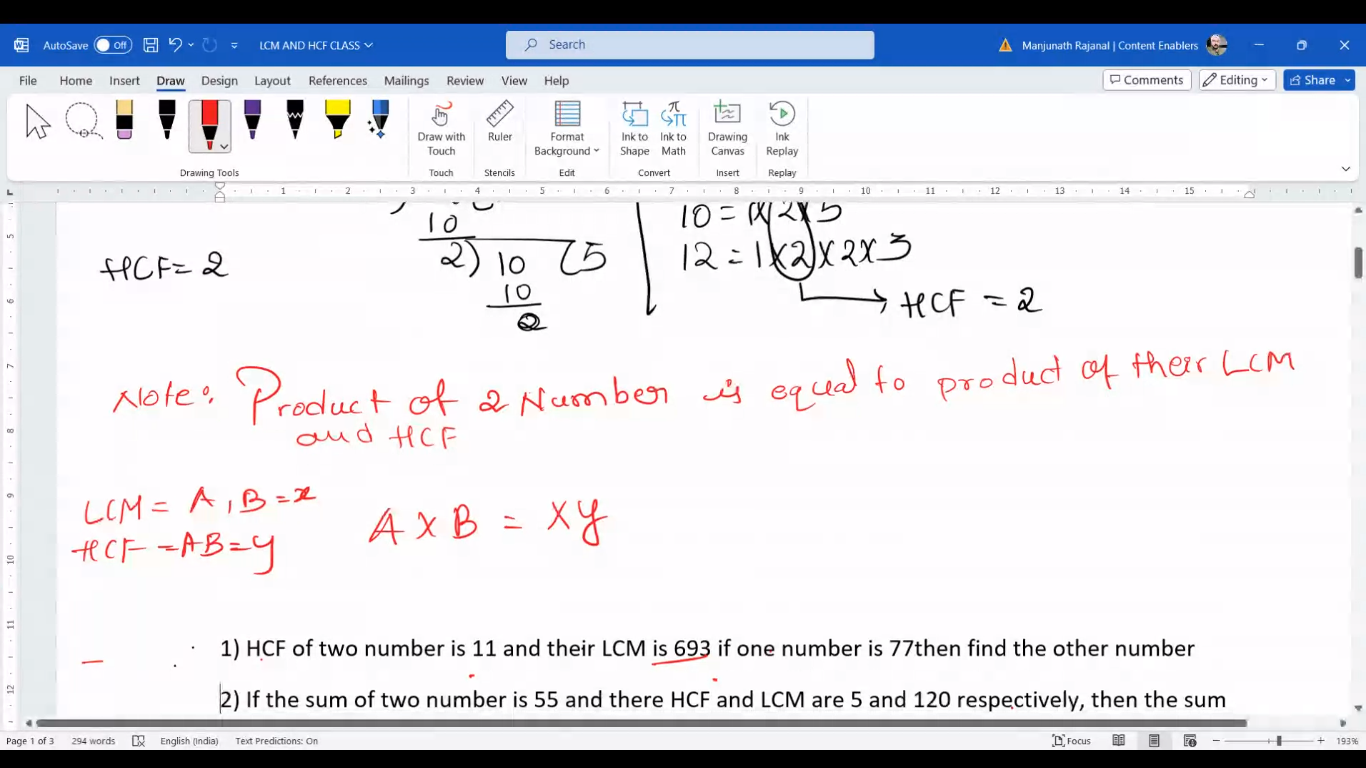 AutoSave Off LCM AND HCF CLASS Search Manjunath Rajanal | Content Enablers
File Home Insert Draw Design Layout References Mailings Review View Help Comments Editing Share
Draw with Touch Ruler Format Background Ink to Shape Ink to Math Drawing Canvas Ink Replay
Drawing Tools Touch Stencils Edit Convert Insert Replay
1 2 3 4 5 6 7 8 9 10 11 12 13 14 15
10 10 = 1x2x5
HCF = 2 2) 10 (5 12 = 1x2x2x3
10 HCF = 2
Note: Product of 2 Number is equal to product of their LCM
and HCF
LCM = A, B = x
HCF = AB = y A x B = xy
1) HCF of two number is 11 and their LCM is 693 if one number is 77then find the other number
2) If the sum of two number is 55 and there HCF and LCM are 5 and 120 respectively, then the sum
Page 1 of 3 294 words English (India) Text Predictions: On Focus 193%